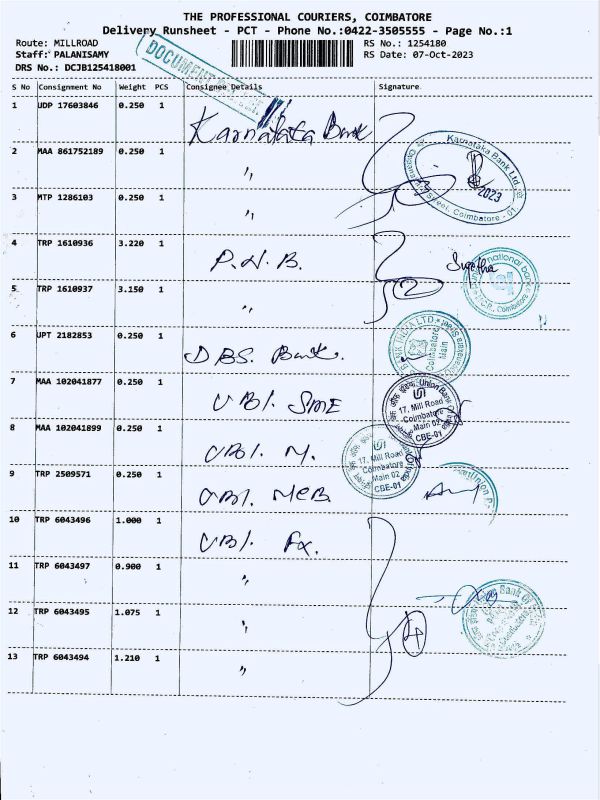 THE PROFESSIONAL COURIERS, COIMBATORE
Delivery Runsheet - PCT - Phone No.:0422-3505555 - Page No.:1
Route: MILLROAD
RS No.: 1254180
Staff: PALANISAMY
RS Date: 07-Oct-2023
DRS No.: DCJB125418001
DOCUMENT
S No Consignment No Weight PCS Consignee Details Signature
1 UDP 17603846 0.250 1 Karnataka Bank
2 MAA 861752189 0.250 1 "
Karnataka Bank Ltd.
2023
Coimbatore - 01
3 MTP 1286103 0.250 1 "
4 TRP 1610936 3.220 1 P.N.B.
5 TRP 1610937 3.150 1 "
2
Coimbatore
6 UPT 2182853 0.250 1 DBS. Bank.
Coimbatore
Main
7 MAA 102041877 0.250 1 UBI. SME
Union Bank
17, Mill Road
Coimbatore
Main 02
CBE-01
8 MAA 102041899 0.250 1 UBI. M.
17, Mill Road
Coimbatore
Main 02
CBE-01
9 TRP 2509571 0.250 1 UBI. MCB.
Union
10 TRP 6043496 1.000 1 UBI. Fx.
11 TRP 6043497 0.900 1 "
Bank Of
12 TRP 6043495 1.075 1 "
4
13 TRP 6043494 1.210 1 "